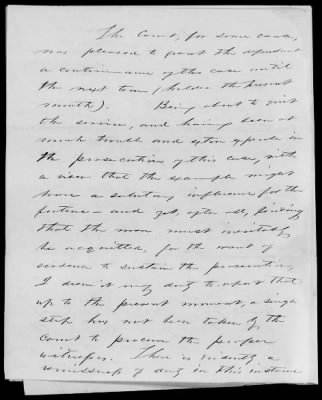 The Court, for some cause,
was pleased to grant the defendant
a continuance of this case until
the next term, (held in the present
month). Being about to quit
the service, and having been at
much trouble and extra expense in
the prosecution of this case, with
a view that the example might
have a salutary influence for the
future – and yet, after all, finding
that the man must inevitably
be acquitted, for the want of
evidence to sustain the prosecution,
I deem it my duty to report that
up to the present moment, a single
step has not been taken by the
Court to procure the proper
witnesses. There is evidently a
remissness of duty in this instance